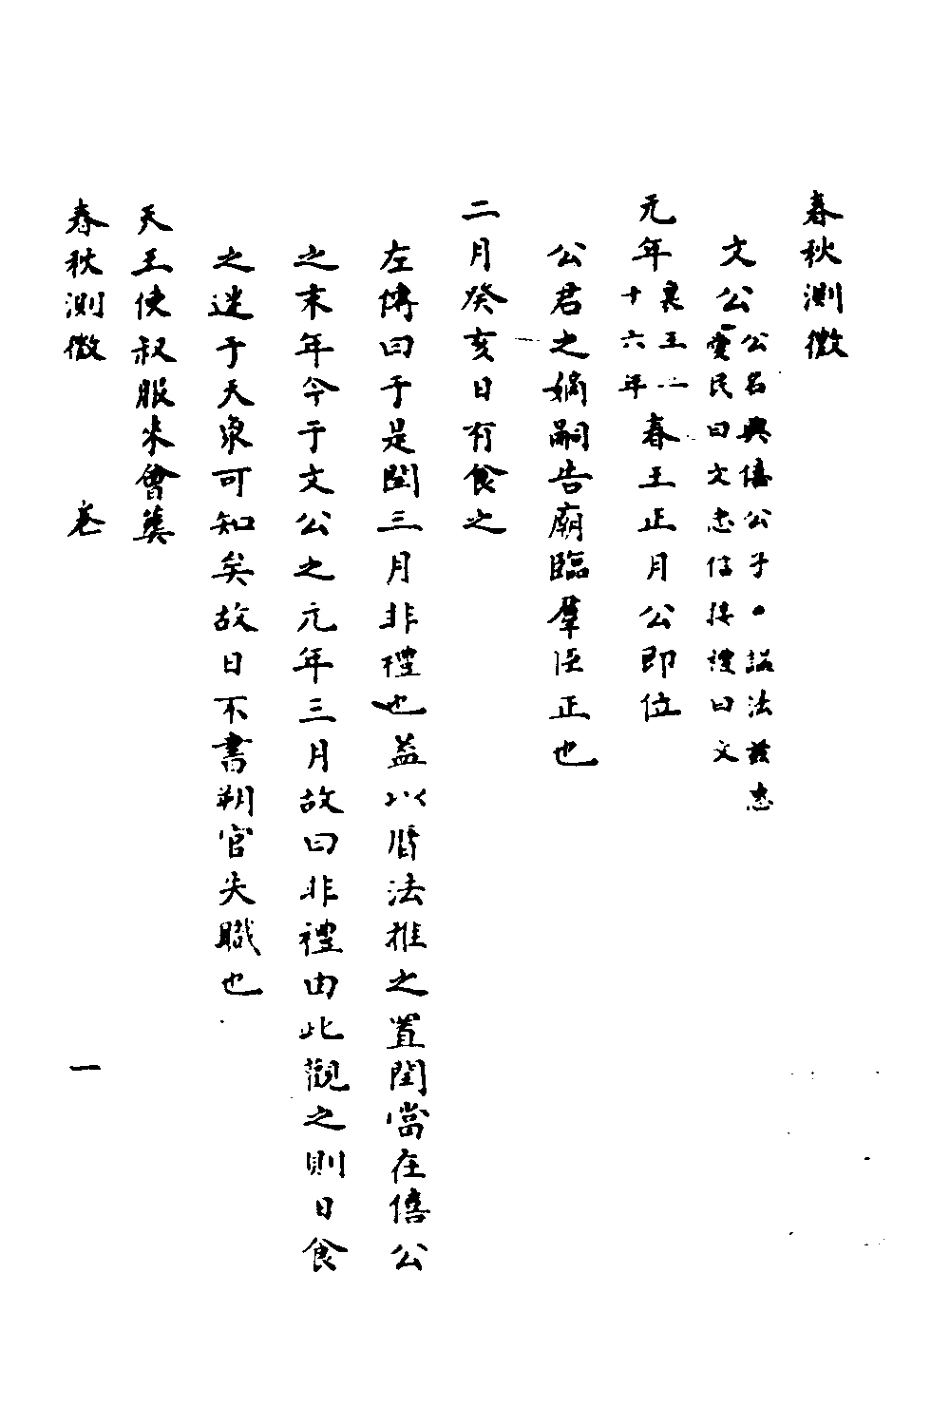 春秋測微
文公公名興僖公子謚法慈惠愛民曰文忠信接禮曰文
元年襄王二十六年春王正月公即位
公君之嫡嗣告廟臨羣臣正也
二月癸亥日有食之
左傳曰于是閏三月非禮也益以曆法推之置閏當在僖公
之末年今于文公之元年三月故曰非禮由此觀之則日食
之迷于天象可知矣故日不書朔官失職也
天王使叔服來會葬
春秋測微 卷 一